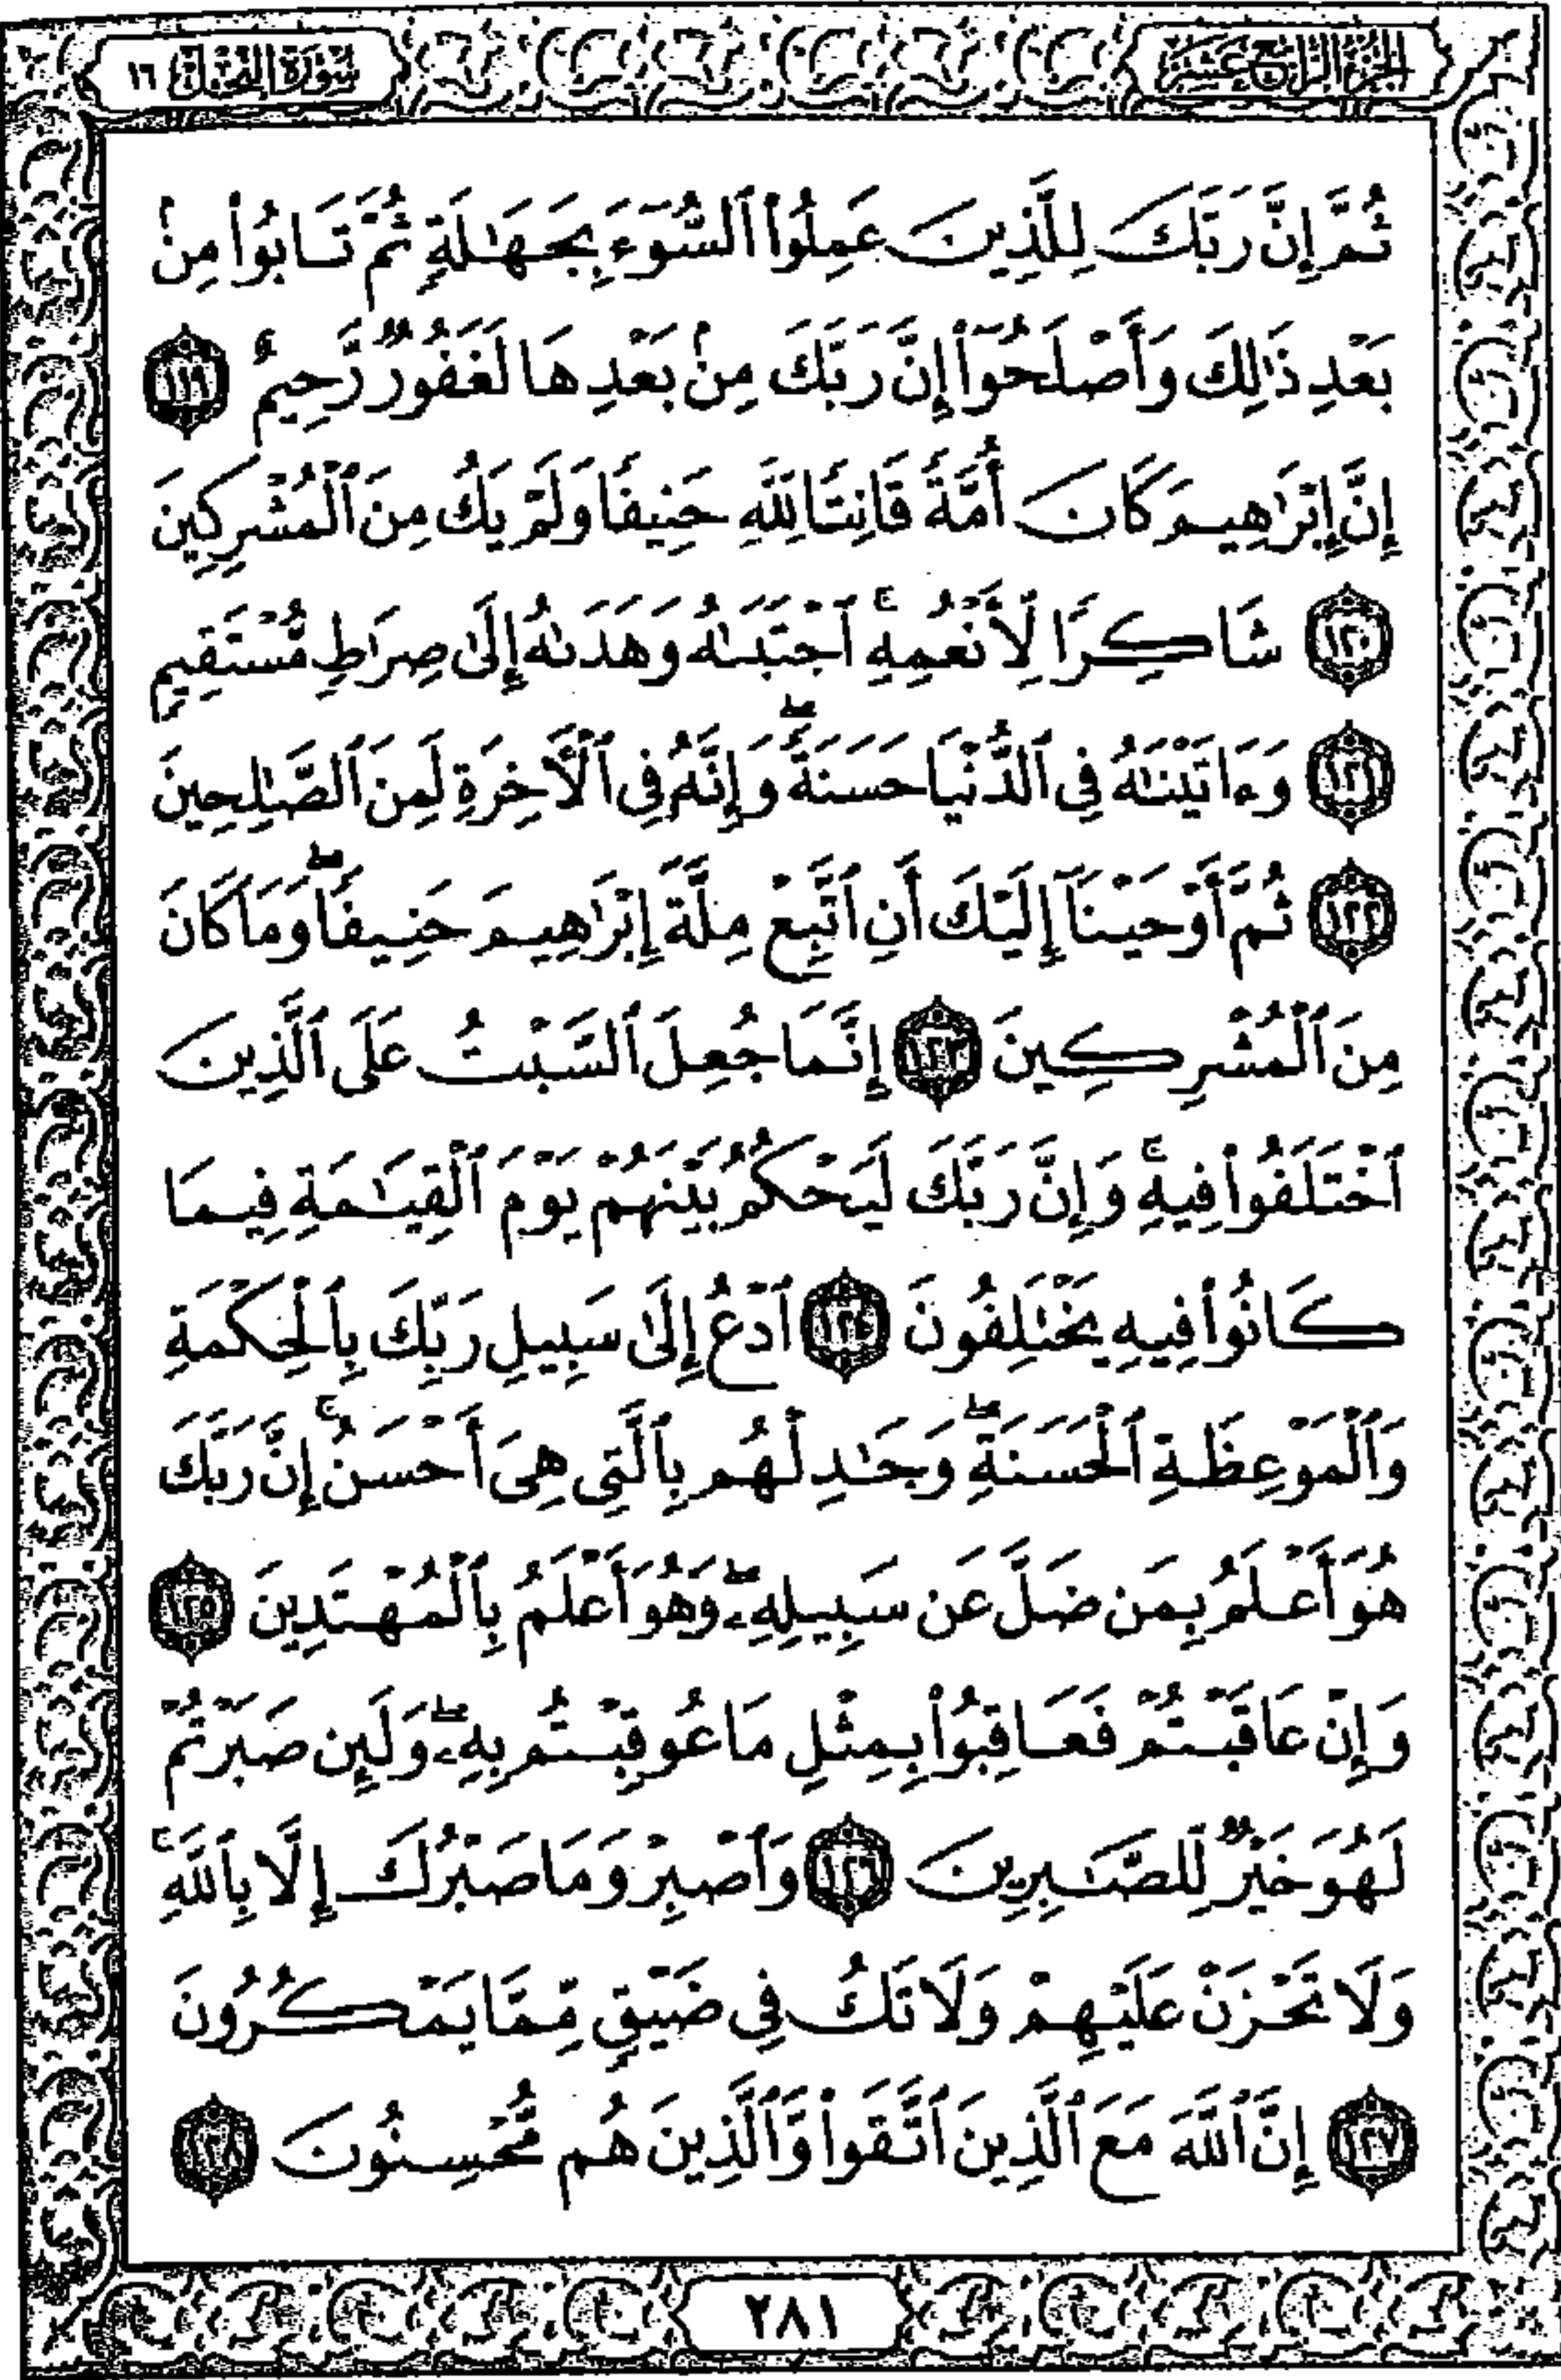 الجزء الرابع عشر
سورة النحل ١٦
ثُمَّ إِنَّ رَبَّكَ لِلَّذِينَ عَمِلُوا۟ ٱلسُّوٓءَ بِجَهَـٰلَةٍ ثُمَّ تَابُوا۟ مِنۢ
بَعْدِ ذَٰلِكَ وَأَصْلَحُوٓا۟ إِنَّ رَبَّكَ مِنۢ بَعْدِهَا لَغَفُورٌ رَّحِيمٌ ١١٩
إِنَّ إِبْرَٰهِيمَ كَانَ أُمَّةً قَانِتًا لِّلَّهِ حَنِيفًا وَلَمْ يَكُ مِنَ ٱلْمُشْرِكِينَ
١٢٠ شَاكِرًا لِّأَنْعُمِهِ ۚ ٱجْتَبَىٰهُ وَهَدَىٰهُ إِلَىٰ صِرَٰطٍ مُّسْتَقِيمٍ
١٢١ وَءَاتَيْنَـٰهُ فِى ٱلدُّنْيَا حَسَنَةً ۖ وَإِنَّهُۥ فِى ٱلْـَٔاخِرَةِ لَمِنَ ٱلصَّـٰلِحِينَ
١٢٢ ثُمَّ أَوْحَيْنَآ إِلَيْكَ أَنِ ٱتَّبِعْ مِلَّةَ إِبْرَٰهِيمَ حَنِيفًا ۖ وَمَا كَانَ
مِنَ ٱلْمُشْرِكِينَ ١٢٣ إِنَّمَا جُعِلَ ٱلسَّبْتُ عَلَى ٱلَّذِينَ
ٱخْتَلَفُوا۟ فِيهِ ۚ وَإِنَّ رَبَّكَ لَيَحْكُمُ بَيْنَهُمْ يَوْمَ ٱلْقِيَـٰمَةِ فِيمَا
كَانُوا۟ فِيهِ يَخْتَلِفُونَ ١٢٤ ٱدْعُ إِلَىٰ سَبِيلِ رَبِّكَ بِٱلْحِكْمَةِ
وَٱلْمَوْعِظَةِ ٱلْحَسَنَةِ ۖ وَجَـٰدِلْهُم بِٱلَّتِى هِىَ أَحْسَنُ ۚ إِنَّ رَبَّكَ
هُوَ أَعْلَمُ بِمَن ضَلَّ عَن سَبِيلِهِۦ ۖ وَهُوَ أَعْلَمُ بِٱلْمُهْتَدِينَ ١٢٥
وَإِنْ عَاقَبْتُمْ فَعَاقِبُوا۟ بِمِثْلِ مَا عُوقِبْتُم بِهِۦ ۖ وَلَئِن صَبَرْتُمْ
لَهُوَ خَيْرٌ لِّلصَّـٰبِرِينَ ١٢٦ وَٱصْبِرْ وَمَا صَبْرُكَ إِلَّا بِٱللَّهِ ۚ
وَلَا تَحْزَنْ عَلَيْهِمْ وَلَا تَكُ فِى ضَيْقٍ مِّمَّا يَمْكُرُونَ
١٢٧ إِنَّ ٱللَّهَ مَعَ ٱلَّذِينَ ٱتَّقَوا۟ وَّٱلَّذِينَ هُم مُّحْسِنُونَ ١٢٨
٢٨١